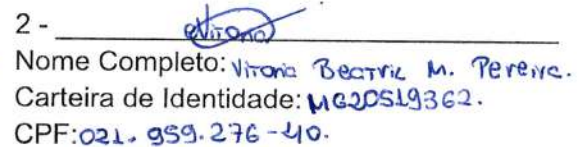 2 - Vitoria
Nome Completo: Vitoria Beatriz M. Pereira.
Carteira de Identidade: MG20519362.
CPF: 021. 959. 276 - 40.